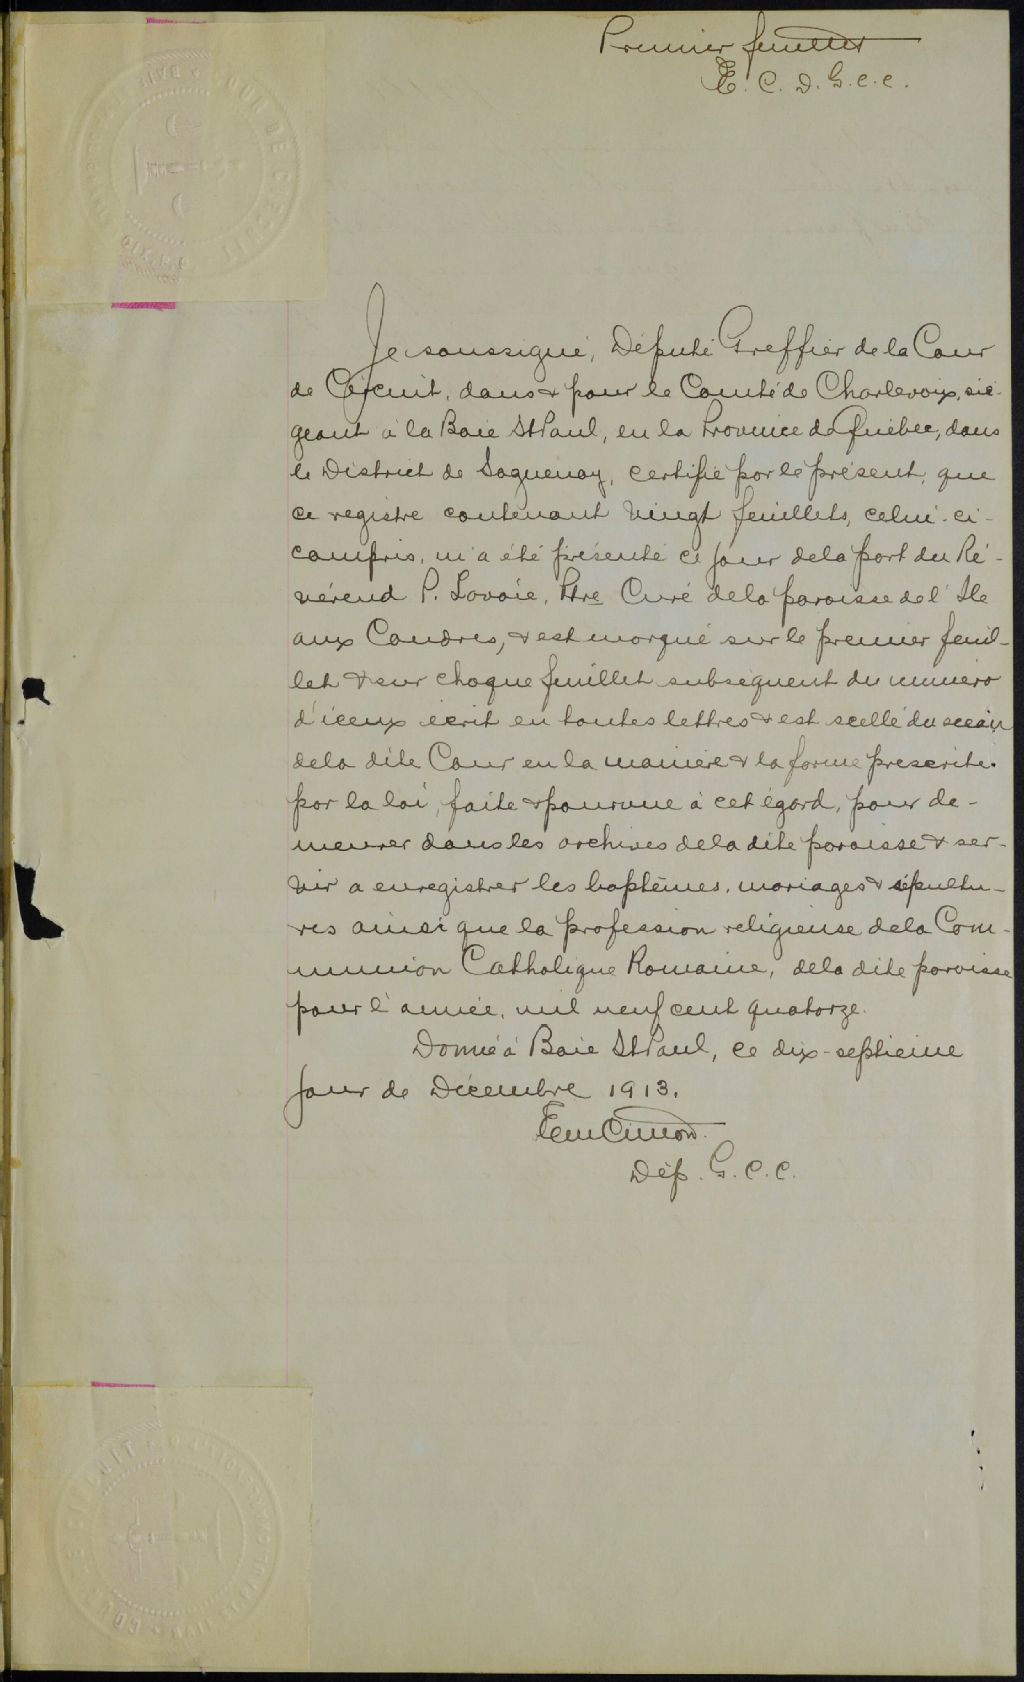 Premier feuillet
E. C. D. G. C. C.
Je soussigné, Député Greffier de la Cour
de Circuit, dans & pour le Comté de Charlevoix, sié-
geant à la Baie St Paul, en la Province de Québec, dans
le District de Saguenay, certifie par le présent, que
ce registre contenant vingt feuillets, celui-ci-
compris, m'a été présenté ce jour de la part du Ré-
vérend P. Lavoie, Ptre Curé de la paroisse de l'Ile
aux Coudres, & est marqué sur le premier feuil-
let & sur chaque feuillet subséquent du numéro
d'iceux écrit en toutes lettres & est scellé du sceau
de la dite Cour en la manière & la forme prescrite
par la loi, faite & pourvue à cet égard, pour de-
meurer dans les archives de la dite paroisse & ser-
vir a enregistrer les baptêmes, mariages & sépultu-
res ainsi que la profession religieuse de la Com-
munion Catholique Romaine, de la dite paroisse
pour l'année, mil neuf cent quatorze.
Donné à Baie St Paul, ce dix-septième
jour de Décembre 1913.
Em Cimon
Dép. G. C. C.